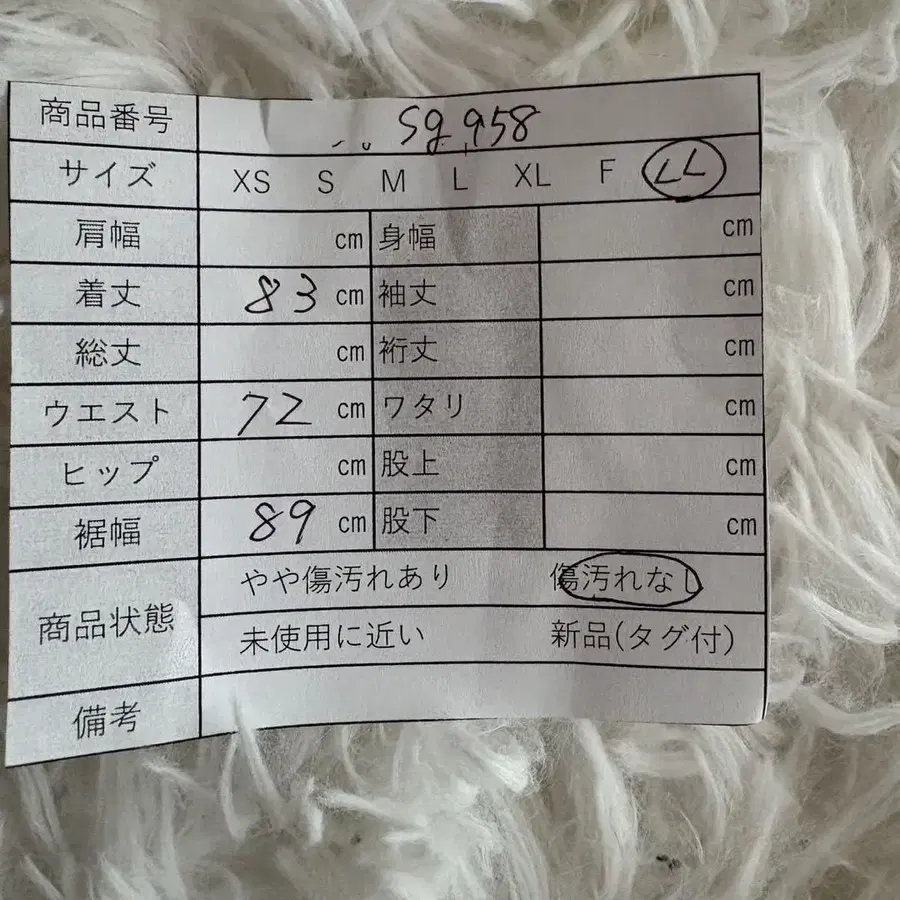 商品番号 Sg958
サイズ XS S M L XL F LL
肩幅 cm 身幅 cm
着丈 83 cm 袖丈 cm
総丈 cm 裄丈 cm
ウエスト 72 cm ワタリ cm
ヒップ cm 股上 cm
裾幅 89 cm 股下 cm
商品状態
やや傷汚れあり 傷汚れなし
未使用に近い 新品(タグ付)
備考